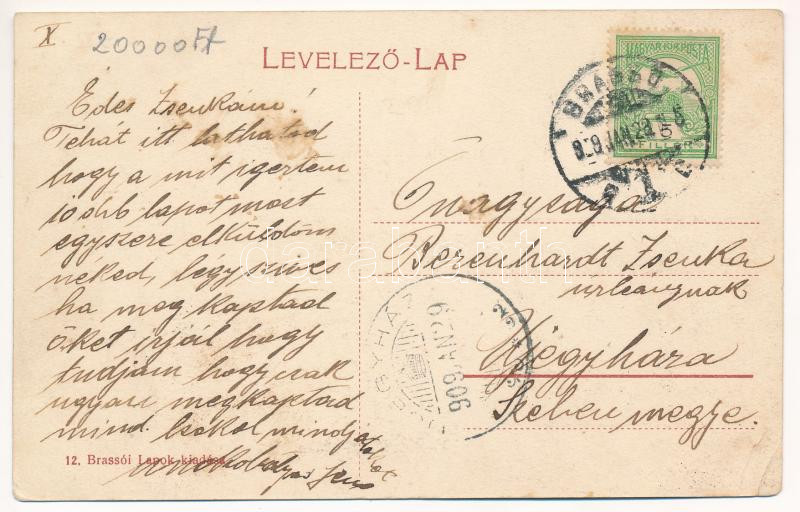 X
20000 Ft
LEVELEZŐ-LAP
Édes Zsenkám!
Tehát itt láthatod
hogy a mit igertem
több lapot most
egyszere elküldöm
néked, légy szives
ha meg kaptad
őket irjál hogy
tudjam hogy csak
ugyan megkaptad
mind. Csókol mindjátokat
12. Brassói Lapok kiadása
MAGYAR KIR. POSTA
5
FILLÉR
BRASSÓ
JAN. 28
Őnagysága
Berenhardt Zsenka
urleánynak
Ujegyháza
Szeben megye.
909 JAN 29
darabanth